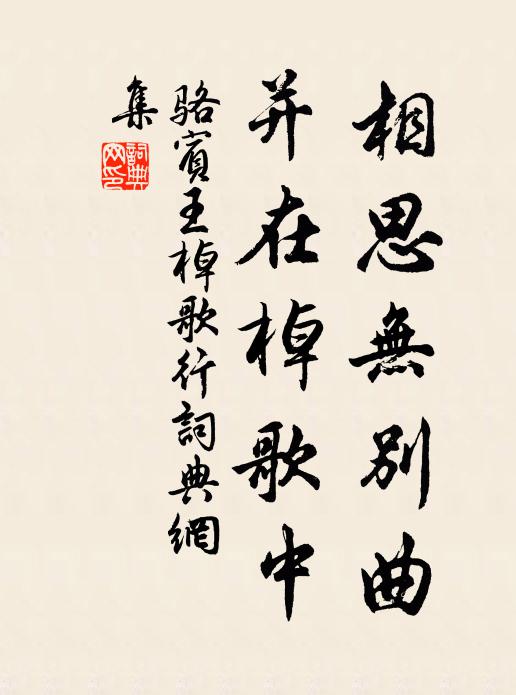 相思無別曲
并在棹歌中
骆賓王棹歌行詞典網
集
詞典
网印